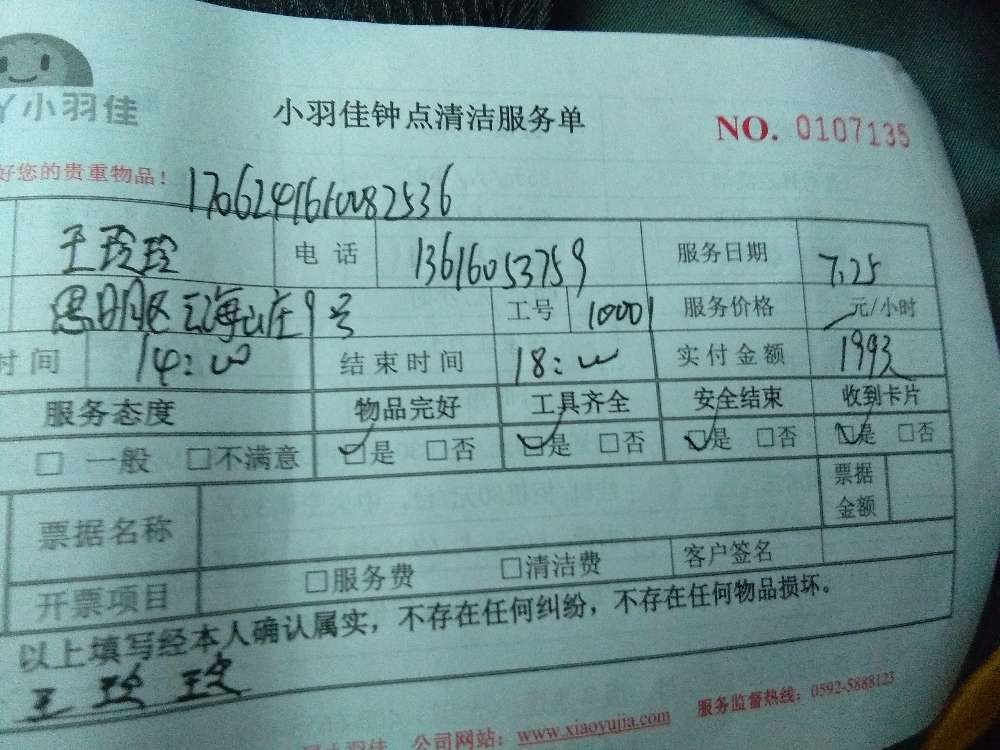 丫小羽佳
小羽佳钟点清洁服务单
NO. 0107135
好您的贵重物品！
17062416160082536
王玲玲 电话 13616053759 服务日期 7.25
思明区 海山庄9号 工号 10001 服务价格 元/小时
时间 14:00 结束时间 18:00 实付金额 199元
服务态度 物品完好 工具齐全 安全结束 收到卡片
□一般 □不满意 □是 □否 □是 □否 □是 □否 □是 □否
票据名称 票据金额
开票项目 □服务费 □清洁费 客户签名
以上填写经本人确认属实，不存在任何纠纷，不存在任何物品损坏。
王玲玲
小羽佳 公司网站：www.xiaoyujia.com 服务监督热线：0592-5888123